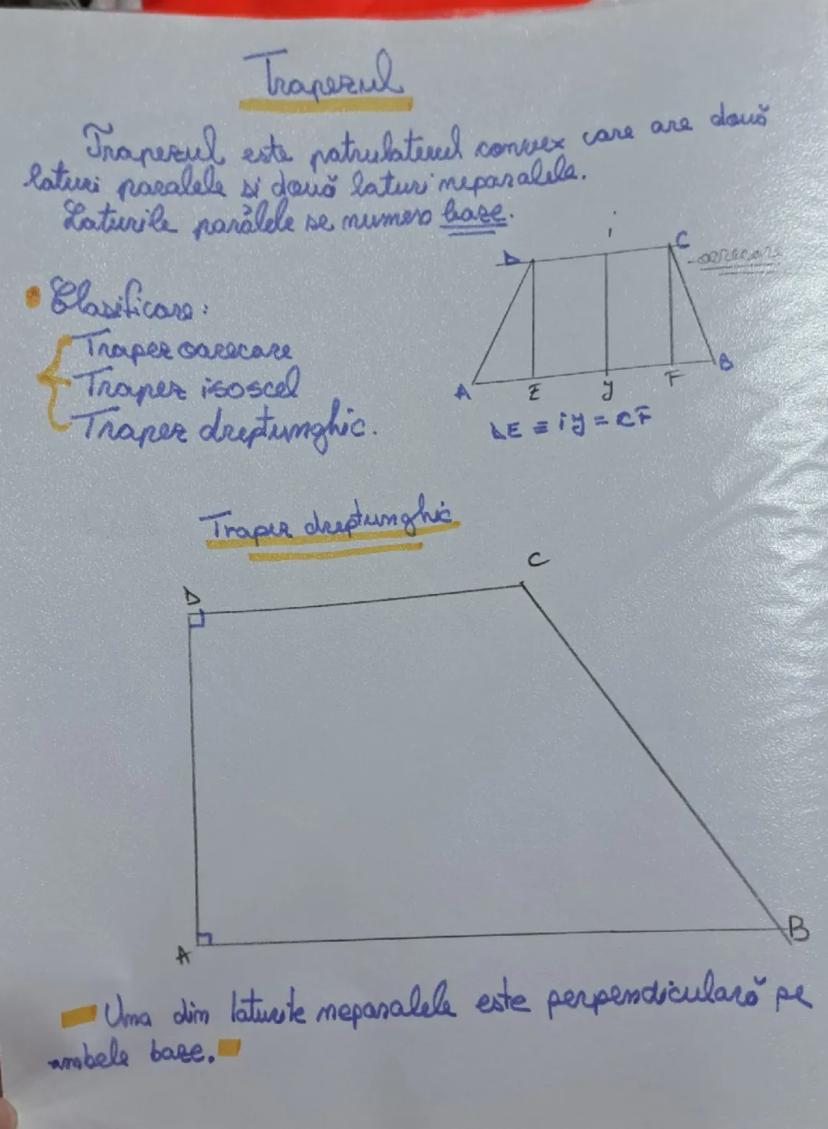 Trapezul
Trapezul este patrulaterul convex care are două
laturi paralele si două laturi neparalele.
Laturile paralele se numesc baze.
D i C
oarecare
A E y F B
DE ≡ iy = CF
Clasificare:
Trapez oarecare
Trapez isoscel
Trapez dreptunghic.
Trapez dreptunghic
D C
A B
Una din laturile neparalele este perpendiculară pe
ambele baze.